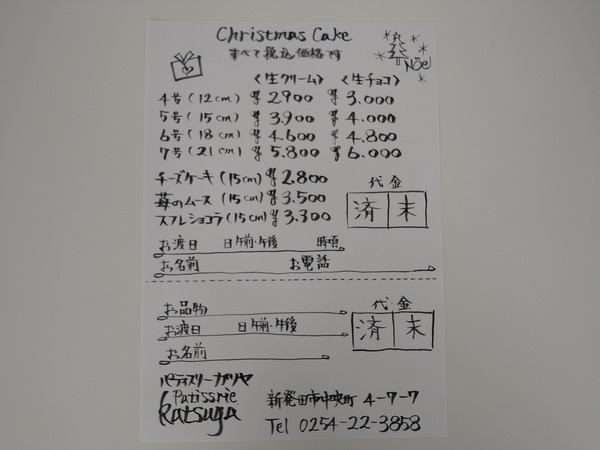 Christmas Cake
すべて税込価格です
Nöel
〈生クリーム〉 〈生チョコ〉
4号(12cm) ¥2900 ¥3,000
5号(15cm) ¥3,900 ¥4,000
6号(18cm) ¥4,600 ¥4,800
7号(21cm) ¥5,800 ¥6,000
チーズケーキ(15cm) ¥2,800
苺のムース(15cm) ¥3,500
スフレショコラ(15cm) ¥3,300
代金
済 末
お渡日 日午前・午後 時頃
お名前 お電話
お品物
お渡日 日午前・午後
お名前
代金
済 末
パティスリーカツヤ
Patissrie
Katsuga
新発田市中央町 4-7-7
Tel 0254-22-3858